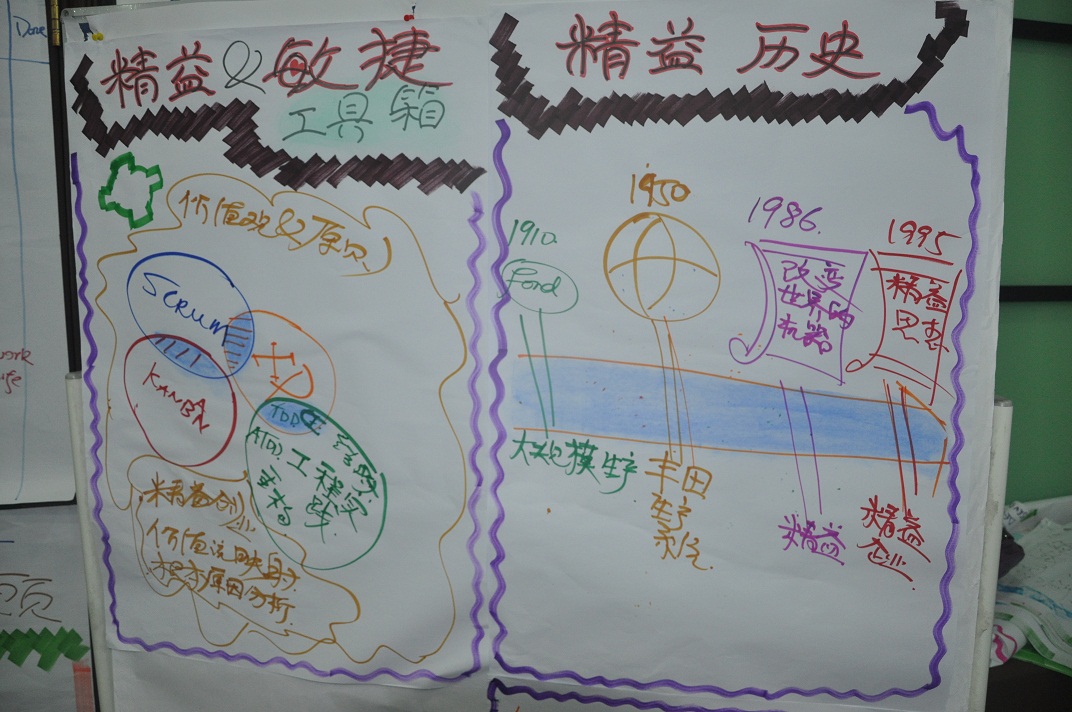 Done
精益&敏捷
工具箱
价值观&原则
SCRUM
KANBAN
XP
TDD
ATDD
工程实践
重构
精益创业
价值流映射
根本原因分析
精益 历史
1910
Ford
大规模生产
1950
丰田
生产
系统
1986.
改变
世界的
机器
精益
1995
精益
思想
精益
企业